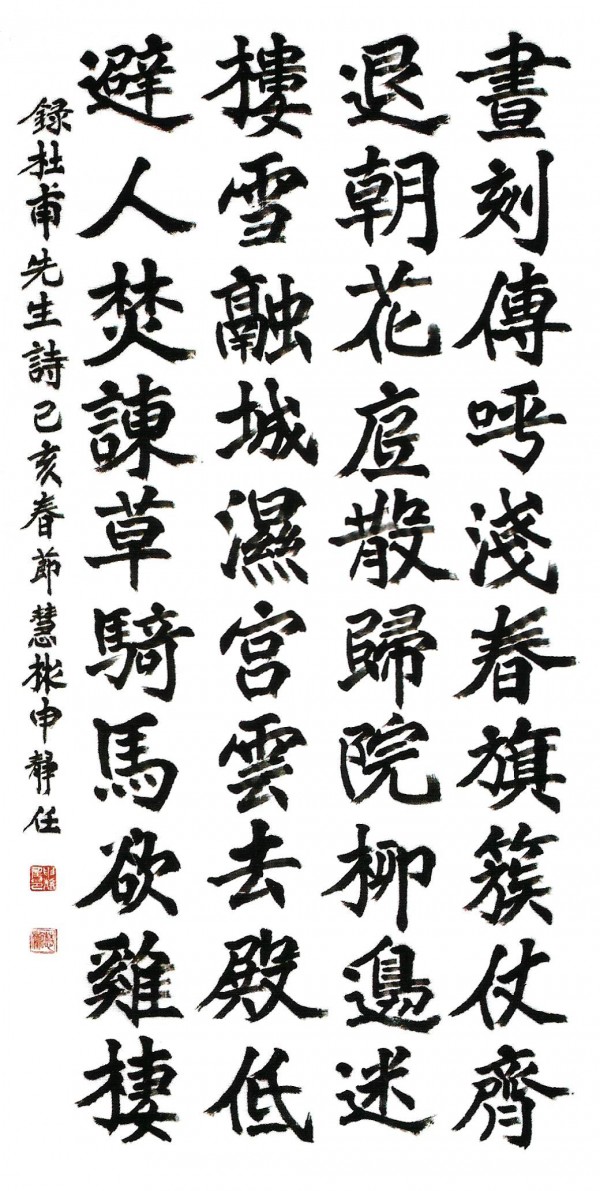 晝刻傳呼淺春旗簇仗齊
退朝花底散歸院柳邊迷
樓雪融城濕宮雲去殿低
避人焚諫草騎馬欲雞棲
録杜甫先生詩己亥春節慧彬申靜任